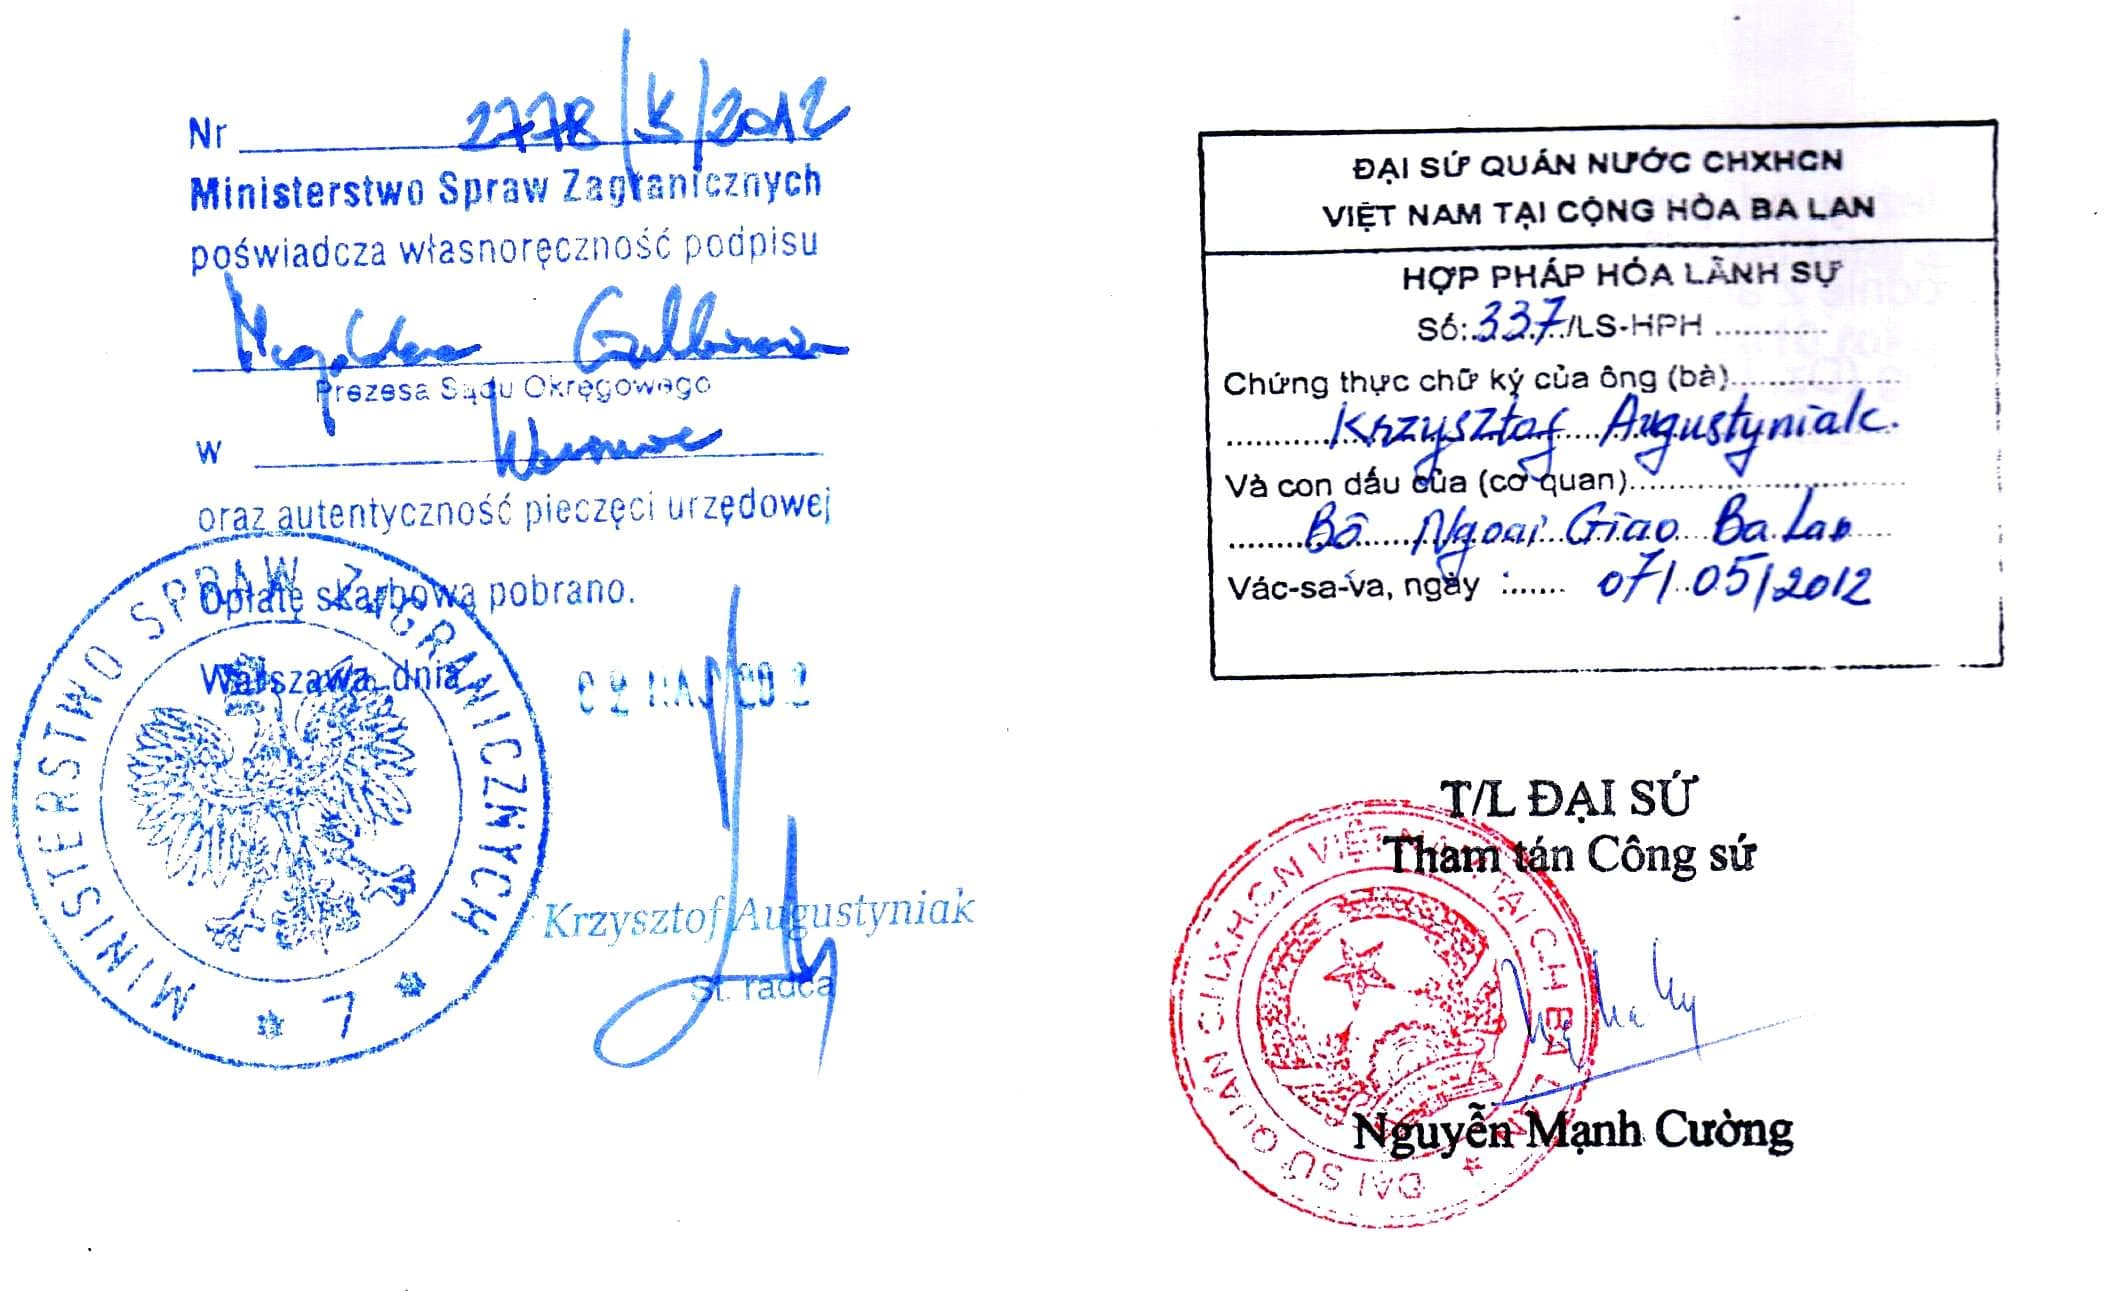 Nr 2778/K/2012
Ministerstwo Spraw Zagranicznych
poświadcza własnoręczność podpisu
Magdalena
Prezesa Sądu Okręgowego
w Warszawie
oraz autentyczność pieczęci urzędowej
Opłatę skarbową pobrano.
Warszawa, dnia
MINISTERSTWO SPRAW ZAGRANICZNYCH
Krzysztof Augustyniak
St. radca
ĐẠI SỨ QUÁN NƯỚC CHXHCN
VIỆT NAM TẠI CỘNG HÒA BA LAN
HỢP PHÁP HÓA LÃNH SỰ
Số: 337/LS-HPH
Chứng thực chữ ký của ông (bà)
Krzysztof Augustyniak.
Và con dấu của (cơ quan)
Bộ Ngoại Giao Ba Lan
Vác-sa-va, ngày : 07/05/2012
T/L ĐẠI SỨ
Tham tán Công sứ
ĐẠI SỨ QUÁN CHXHCN VIỆT NAM TẠI CH BA LAN
Nguyễn Mạnh Cường